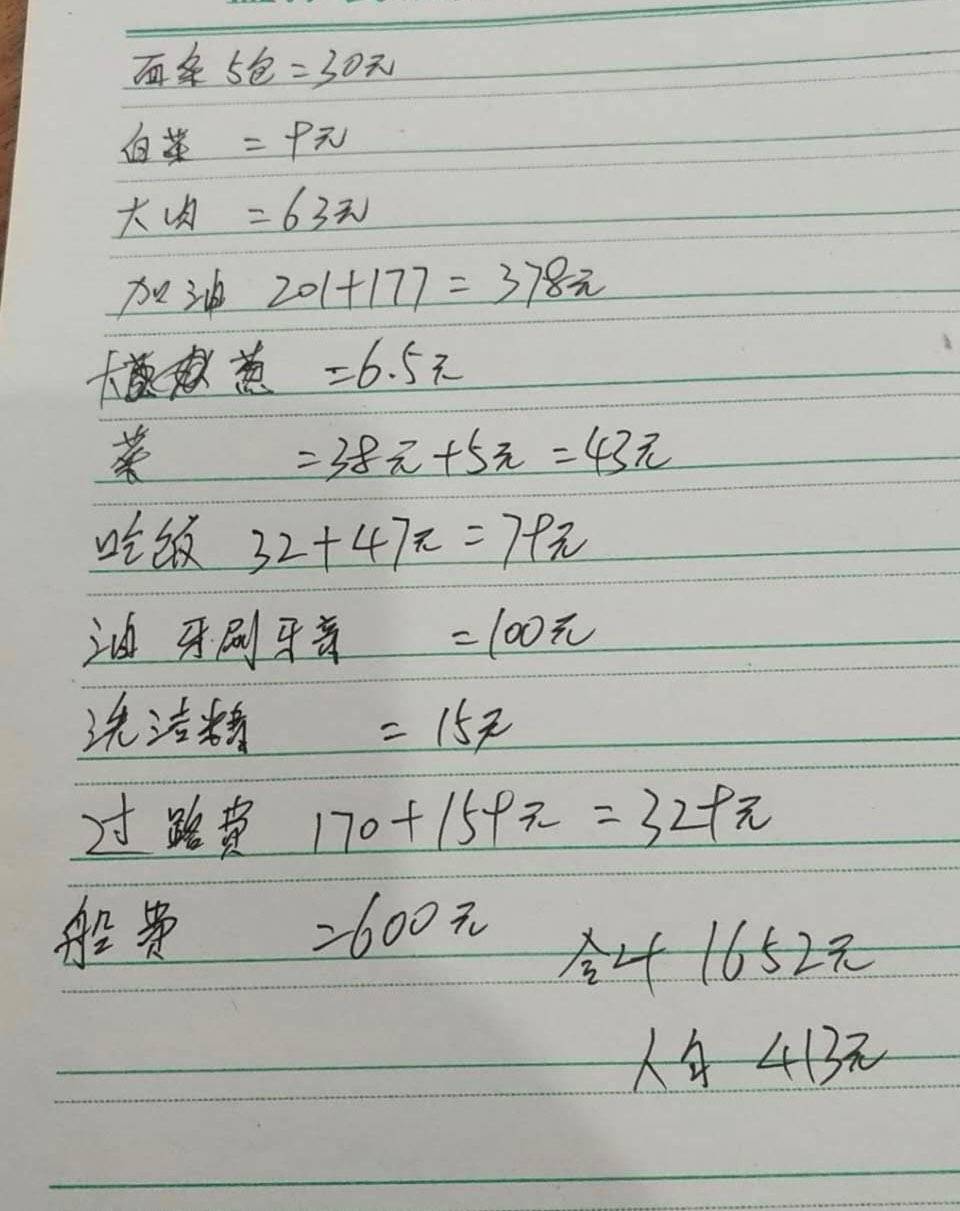 面条 5包=30元
白菜 =9元
大肉 =63元
加油 201+177=378元
大葱 =6.5元
菜 =38元+5元=43元
吃饭 32+47元=79元
油 牙刷牙膏 =100元
洗洁精 =15元
过路费 170+159元=329元
船费 =600元
合计 1652元
人均 413元